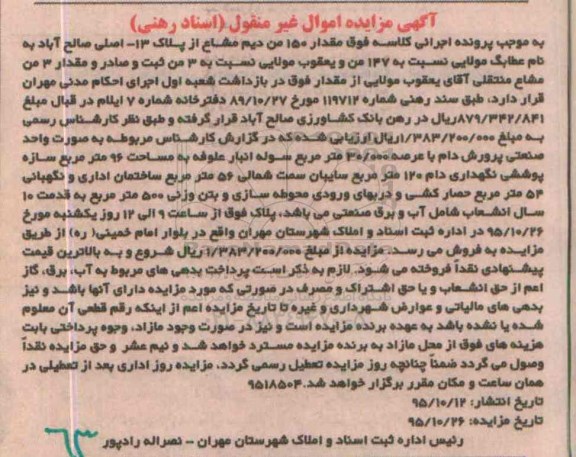 آگهی مزایده اموال غیر منقول (اسناد رهنی)
به موجب پرونده اجرائی کلاسه فوق مقدار ۱۵۰ من دیم مشاع از پلاک ۱۳- اصلی صالح آباد به
نام عطابگ مولایی نسبت به ۱۴۷ من و یعقوب مولایی نسبت به ۳ من ثبت و صادر و مقدار ۳ من
مشاع منتقلی آقای یعقوب مولایی از مقدار فوق در بازداشت شعبه اول اجرای احکام مدنی مهران
قرار دارد، طبق سند رهنی شماره ۱۱۹۷۱۲ مورخ ۸۹/۱۰/۲۷ دفترخانه شماره ۷ ایلام در قبال مبلغ
۸۷۹/۳۴۲/۸۴۱ریال در رهن بانک کشاورزی صالح آباد قرار گرفته و طبق نظر کارشناس رسمی
به مبلغ ۱/۳۸۳/۲۰۰/۰۰۰ریال ارزیابی شده که در گزارش کارشناس مربوطه به صورت واحد
صنعتی پرورش دام با عرصه ۳۰/۰۰۰ متر مربع سوله انبار علوفه به مساحت ۹۶ متر مربع سازه
پوششی نگهداری دام ۱۲۰ متر مربع سایبان سمت شمالی ۵۶ متر مربع ساختمان اداری و نگهبانی
۵۴ متر مربع حصار کشی و دربهای ورودی محوطه سازی و بتن وزنی ۵۰۰ متر مربع به قدمت ۱۰
سال انشعاب شامل آب و برق صنعتی می باشد، پلاک فوق از ساعت ۹ الی ۱۲ روز یکشنبه مورخ
۹۵/۱۰/۲۶ در اداره ثبت اسناد و املاک شهرستان مهران واقع در بلوار امام خمینی( ره) از طریق
مزایده به فروش می رسد. مزایده از مبلغ ۱/۳۸۳/۲۰۰/۰۰۰ ریال شروع و به بالاترین قیمت
پیشنهادی نقداً فروخته می شود. لازم به ذکر است پرداخت بدهی های مربوط به آب، برق، گاز
اعم از حق انشعاب و یا حق اشتراک و مصرف در صورتی که مورد مزایده دارای آنها باشد و نیز
بدهی های مالیاتی و عوارض شهرداری و غیره تا تاریخ مزایده اعم از اینکه رقم قطعی آن معلوم
شده یا نشده باشد به عهده برنده مزایده است و نیز در صورت وجود مازاد، وجوه پرداختی بابت
هزینه های فوق از محل مازاد به برنده مزایده مسترد خواهد شد و نیم عشر و حق مزایده نقداً
وصول می گردد ضمناً چنانچه روز مزایده تعطیل رسمی گردد، مزایده روز اداری بعد از تعطیلی در
همان ساعت و مکان مقرر برگزار خواهد شد.۹۵۱۸۵۰۴
تاریخ انتشار: ۹۵/۱۰/۱۲
تاریخ مزایده: ۹۵/۱۰/۲۶
رئیس اداره ثبت اسناد و املاک شهرستان مهران - نصراله رادپور